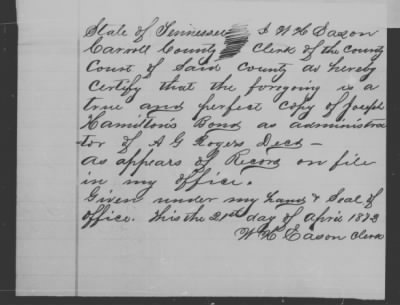 State of Tennessee I W H Eason
Carroll County Clerk of the County
Court of Said County do hereby
Certify that the foregoing is a
true and perfect Copy of Joseph
Hamilton's Bond as administra
tor of A G Rogers Decd —
as appears of Record on file
in my office.
Given under my hand & Seal of
office. This the 21st day of April 1873
W H Eason Clerk